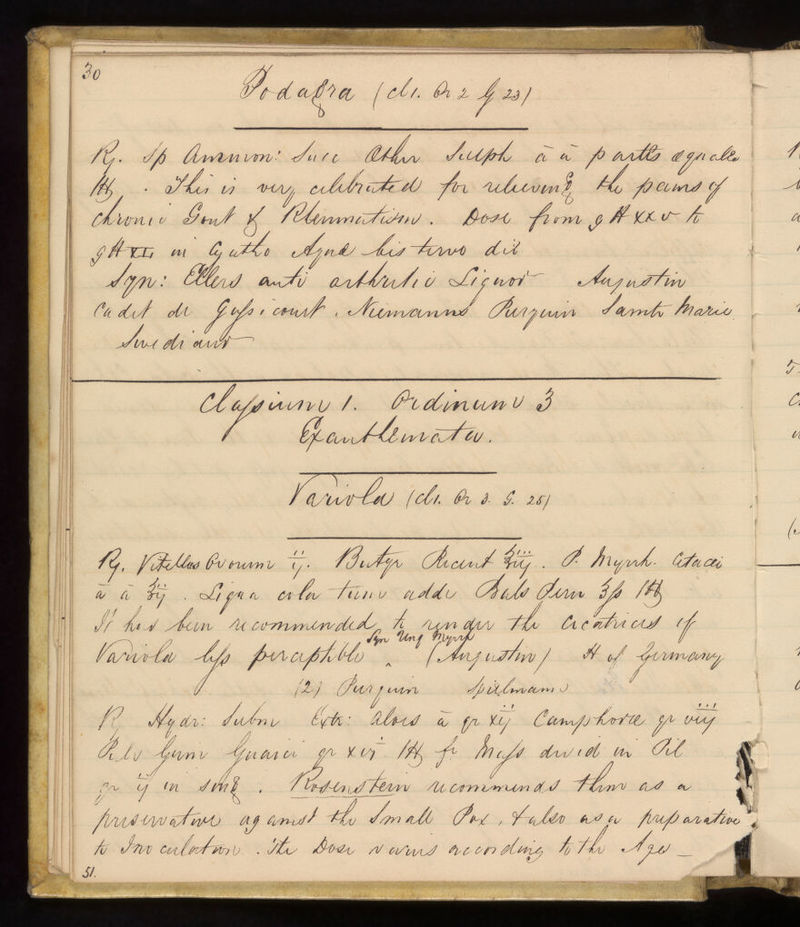 30
Podagra (cl 1. Or 2 G 23)
℞. Sp Ammon: Succ Æther Sulph ā ā partes æquales
M. This is very celebrated for relieving the pains of
chronic Gout & Rheumatism. Dose from gtt xxv to
gtt XL in Cyatho Aquæ bis terve die
Syn: Ellers anti arthritic Liquor Augustin
Cadet de Gassicourt. Niemanns Pierquin Sainte Marie
Swediaur
Classium 1. Ordinum 3
Exanthemata.
Variola (cl 1. Or 3. G. 25)
℞. Vitellos Ovorum ij. Butyr Recent ℥iij. P. Myrrh. Cetacei
ā ā ʒij. Liqua cola tum adde Bals Peru ʒſs M
It has been recommended to render the cicatrices of
Syn Ung Myrrh
Variola less perceptible (Augustin) H of Germany
(2) Pierquin Spielmann
℞ Hydr: Subm Extr: Aloes ā gr xij Camphoræ gr viij
Gum Guaici gr xvj M ft Mass divid in Pil
gr ij in sing. Rosenstein recommends them as a
preservative against the Small Pox, & also as a preparative
to Inoculation. The Dose varies according to the Age —
51.